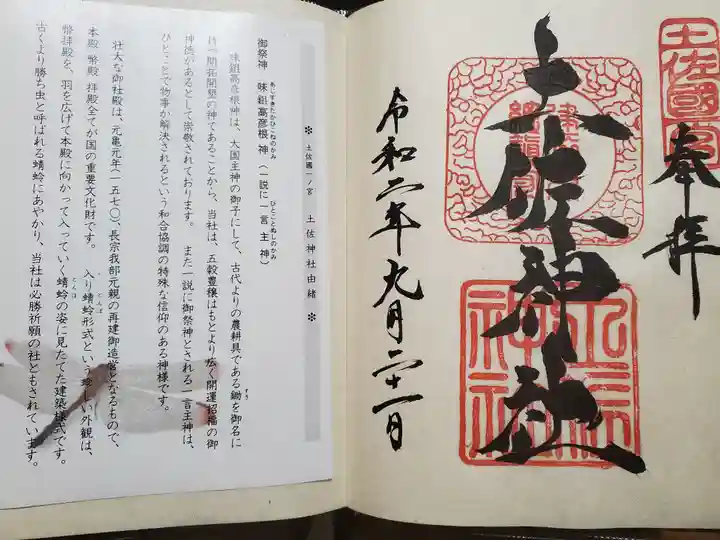 奉拝
土佐神社
令和二年九月二十一日
土佐國
土佐神社
❉ 土佐國一ノ宮 土佐神社由緒 ❉
御祭神 味鉏高彦根神(一説に一言主神)
あじすきたかひこねのかみ
ひとことぬしのかみ
味鉏高彦根神は、大国主神の御子にして、古代よりの農耕具である鋤を御名に
すき
持つ開拓開墾の神であることから、当社は、五穀豊穣はもとより広く開運招福の御
神徳があるとして崇敬されております。 また一説に御祭神とされる一言主神は、
ひとことで物事が解決されるという和合協調の特殊な信仰のある神様です。
壮大な御社殿は、元亀元年(一五七〇)、長宗我部元親の再建御造営となるもので、
本殿 幣殿 拝殿全てが国の重要文化財です。 入り蜻蛉形式という珍しい外観は、
とんぼ
幣拝殿を、羽を広げて本殿に向かって入っていく蜻蛉の姿に見たてた建築様式です。
とんぼ
古くより勝ち虫と呼ばれる蜻蛉にあやかり、当社は必勝祈願の社ともされています。